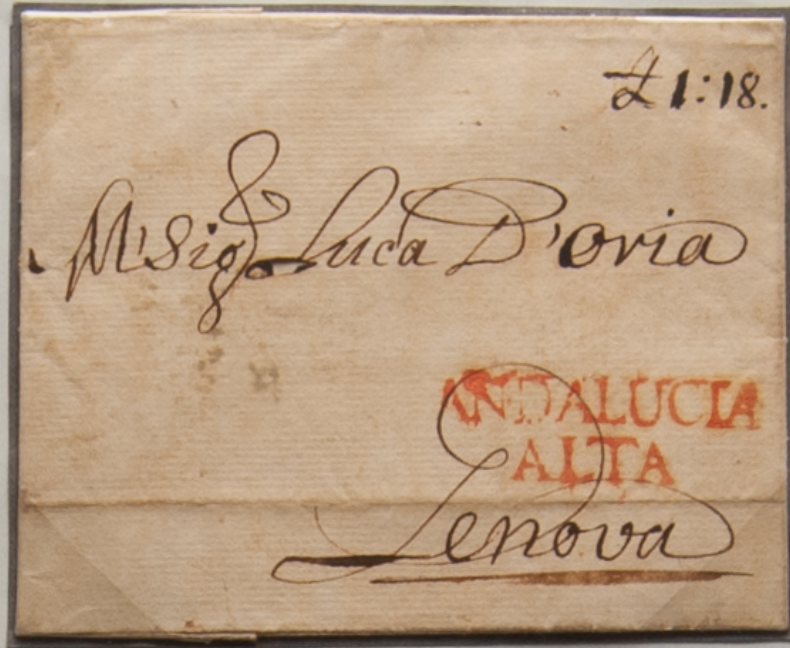 £ 1:18.
Al Sig.r Luca D'oria
ANDALUCIA
ALTA
Genova